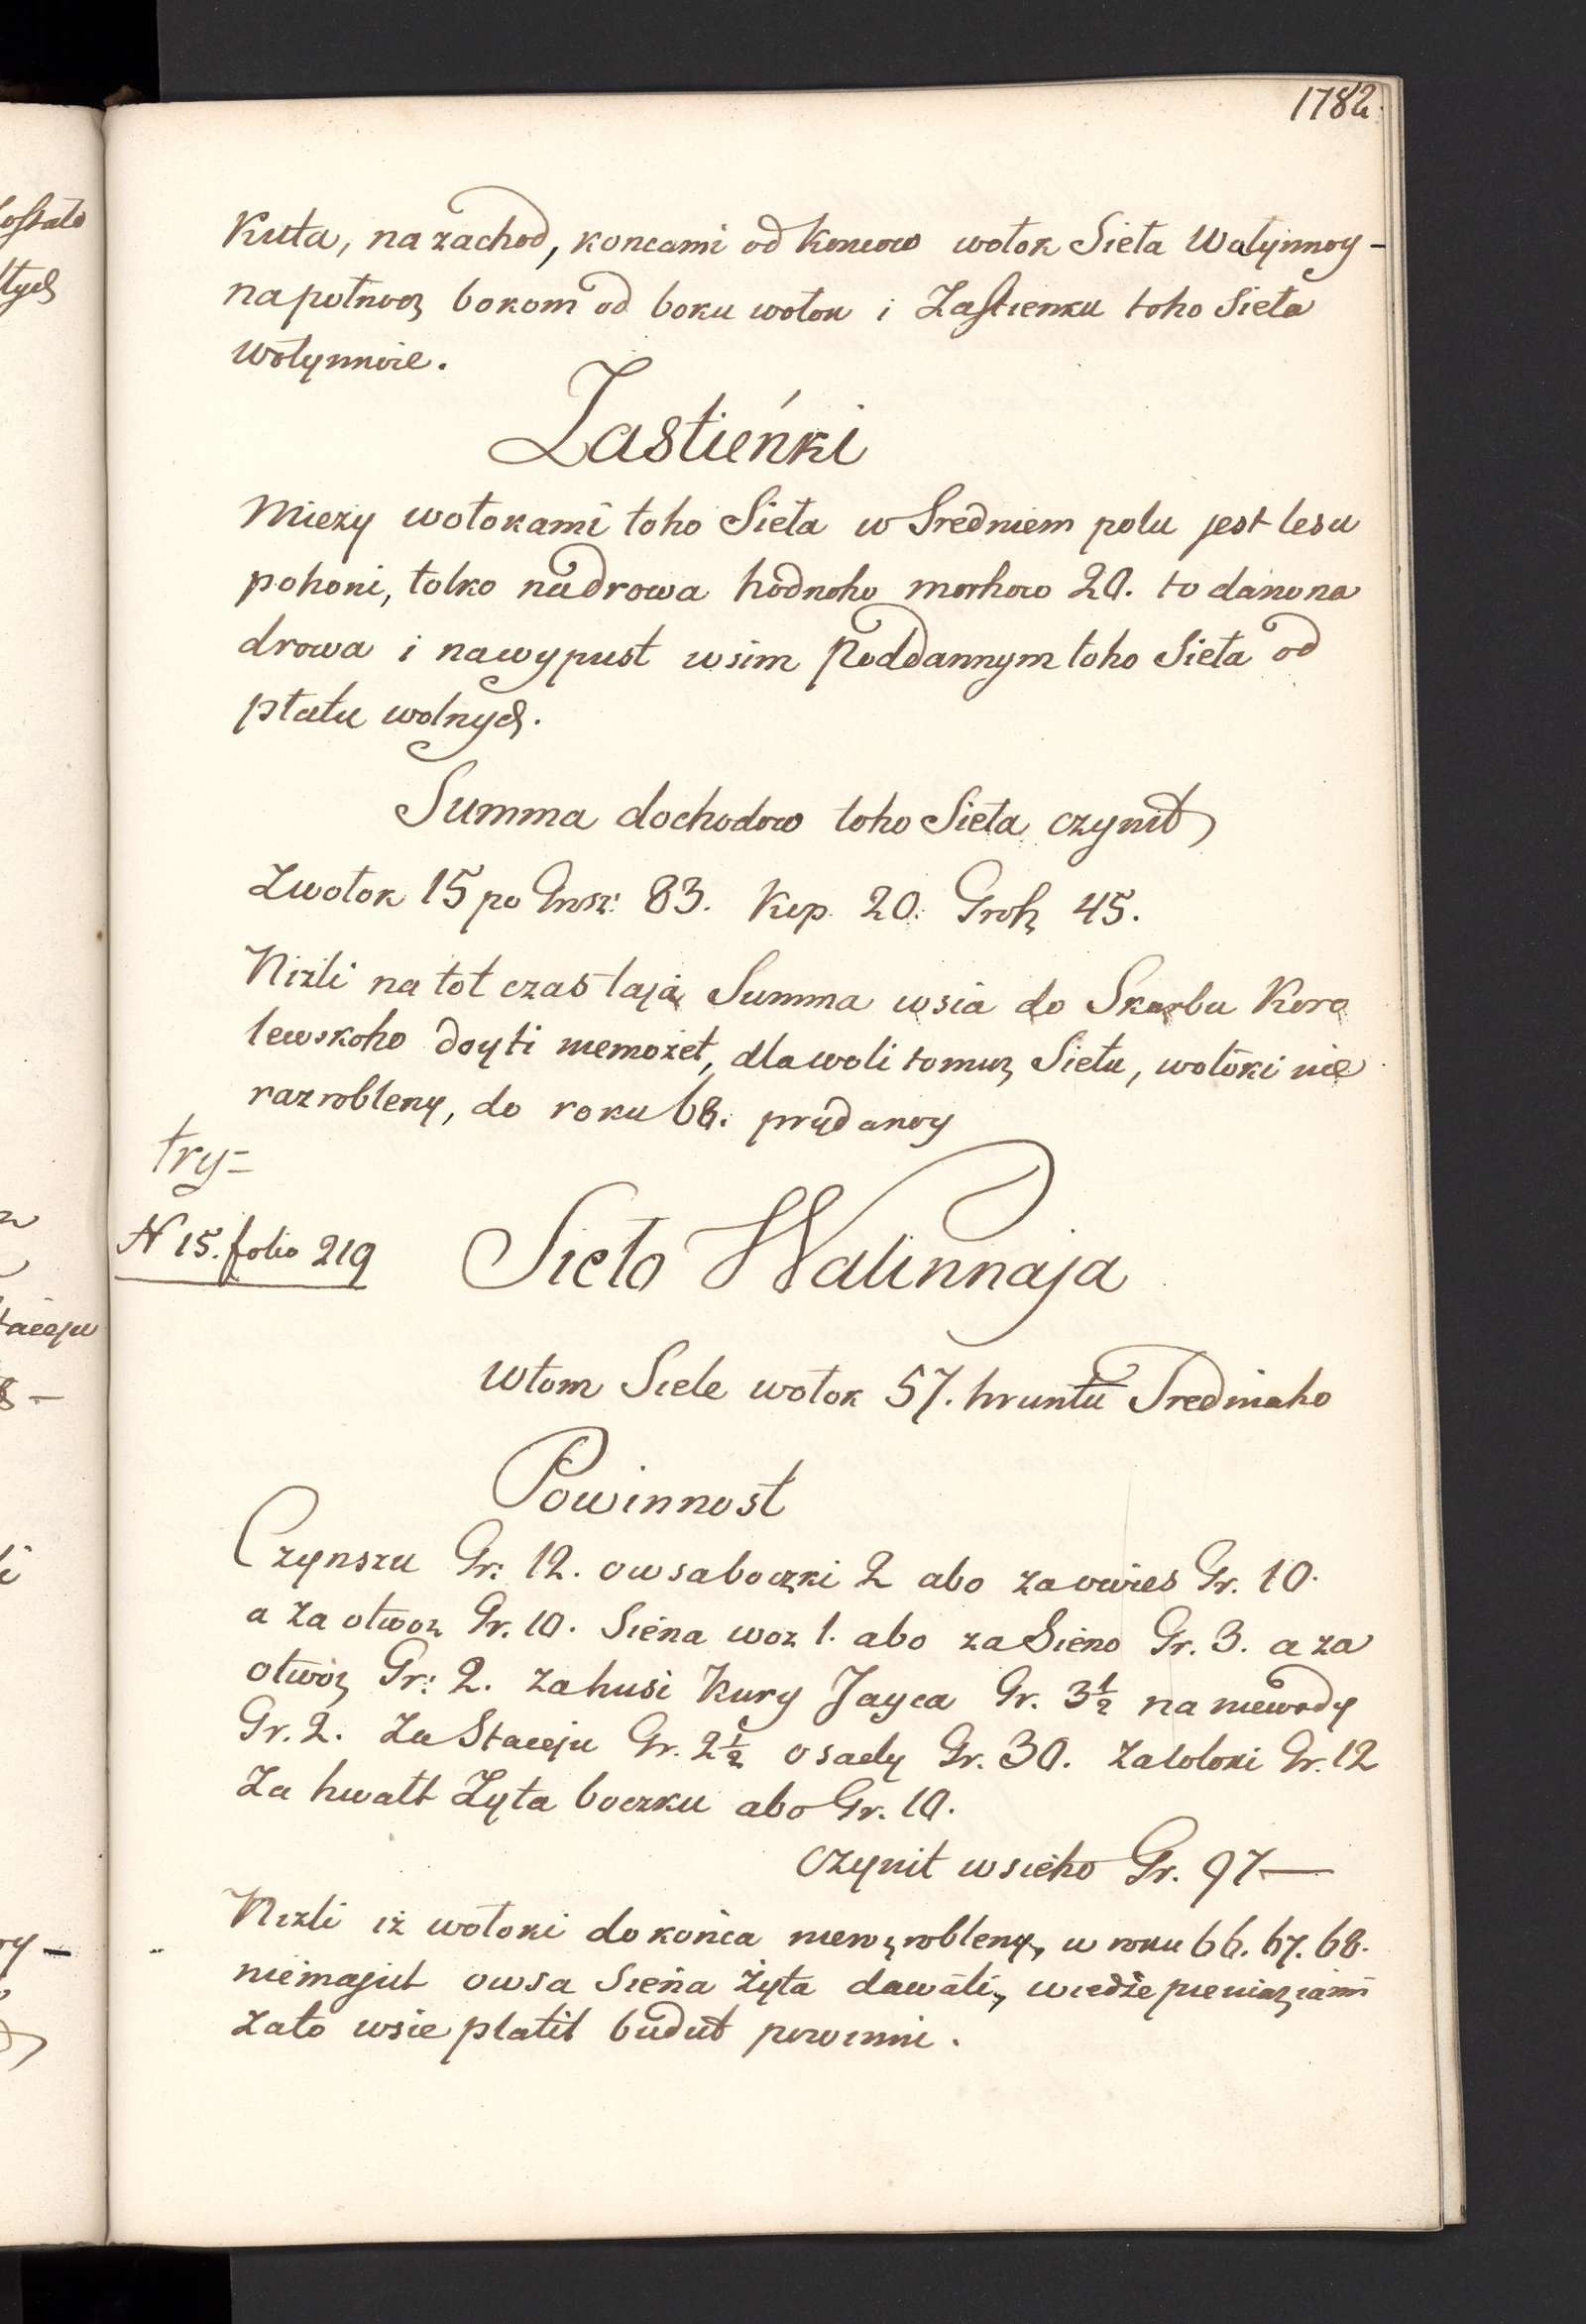 1782
Kuta, na zachod, koncami od koncow wołok Sieła Wałynnoy-
na połnocz bokom od boku wołok i Zastienku toho Sieła
wołynnoie.
Zastieńki
Mieży wołokami toho Sieła w Sredniem polu jest lesu
pohoni, tolko na drowa hodnoho morhow 20. to dano na
drowa i na wypust wsim Poddannym toho Sieła od
płatu wolnych.
Summa dochodow toho Sieła czynit
Z wołok 15 po Grosz: 83. Kop 20. Groszy 45.
Niżli na tot czas taja Summa wsia do Skarbu Koro
lewskoho doyti niemożet, dla woli tomuż Siełu, wołoki nie
razrobleny, do roku 68. prydanoy
try=
N 15. folio 219
Sieło Walinnaja
Wtom Siele wołok 57. hruntu Sredniaho
Powinnost
Czynszu Gr: 12. owsa boczki 2 abo za owies Gr. 10.
a za otwoz Gr. 10. Siena woz 1. abo za Sieno Gr. 3. a za
otwoz Gr: 2. za husi Kury Jayca Gr. 3½ na niewody
Gr. 2. Za Staceju Gr. 2½ osady Gr. 30. za toloki Gr. 12
Za hwałt Żyta boczku abo Gr. 10.
czynit wsieho Gr. 97—
Niżli iż wołoki do końca niewyrobleny, w roku 66. 67. 68.
niemajut owsa Siena żyta dawali, wiedże pieniaziami
zato wsie płatit budut powinni.
łostało
tych
taceju
8 -